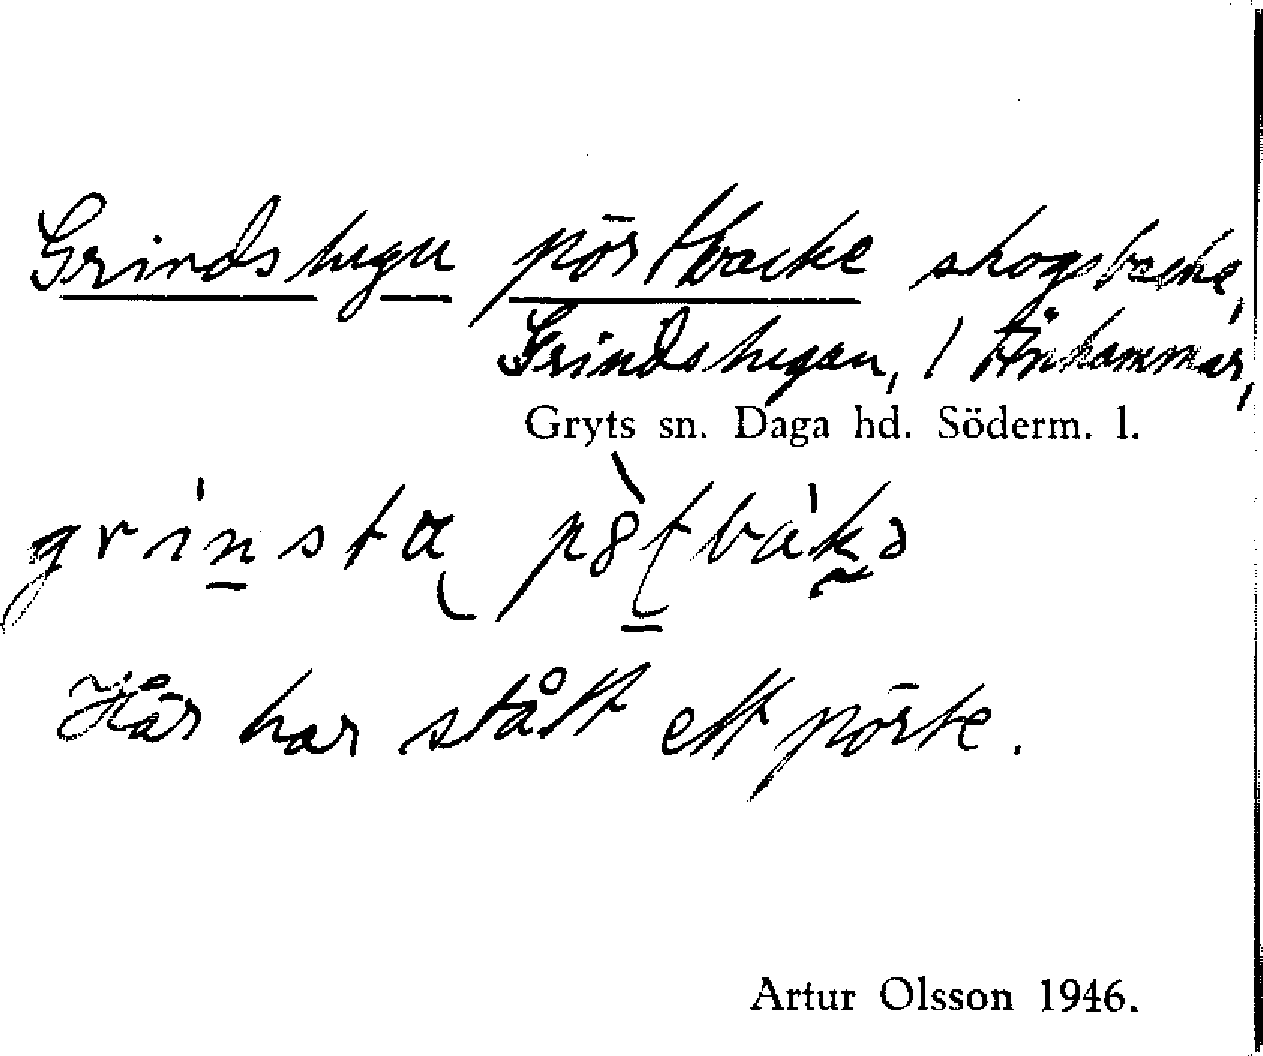 Grindstugu pörtbacke skogsbacke,
Grindstugan, / Änhammar,
Gryts sn. Daga hd. Söderm. l.
Här har stått ett pörte.
Artur Olsson 1946.